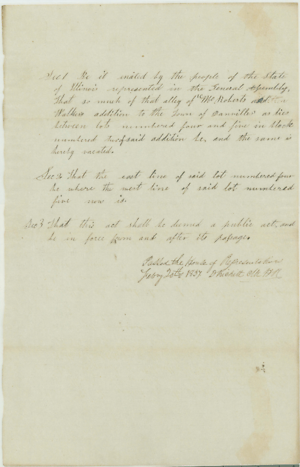 Sec 1 Be it enacted by the people of the State
of Illinois represented in the General Assembly,
That so much of that alley of McRoberts and
Walkers addition to the Town of Danville as lies
between lots numbered four and five in block
numbered of said addition be, and the same is
hereby vacated.
Sec 2 That the east line of said lot numbered four
be where the west line of said lot numbered
five now is.
Sec 3 That this act shall be deemed a public act, and
be in force from and after its passage.
Passed the House of Representatives
Jany 1837